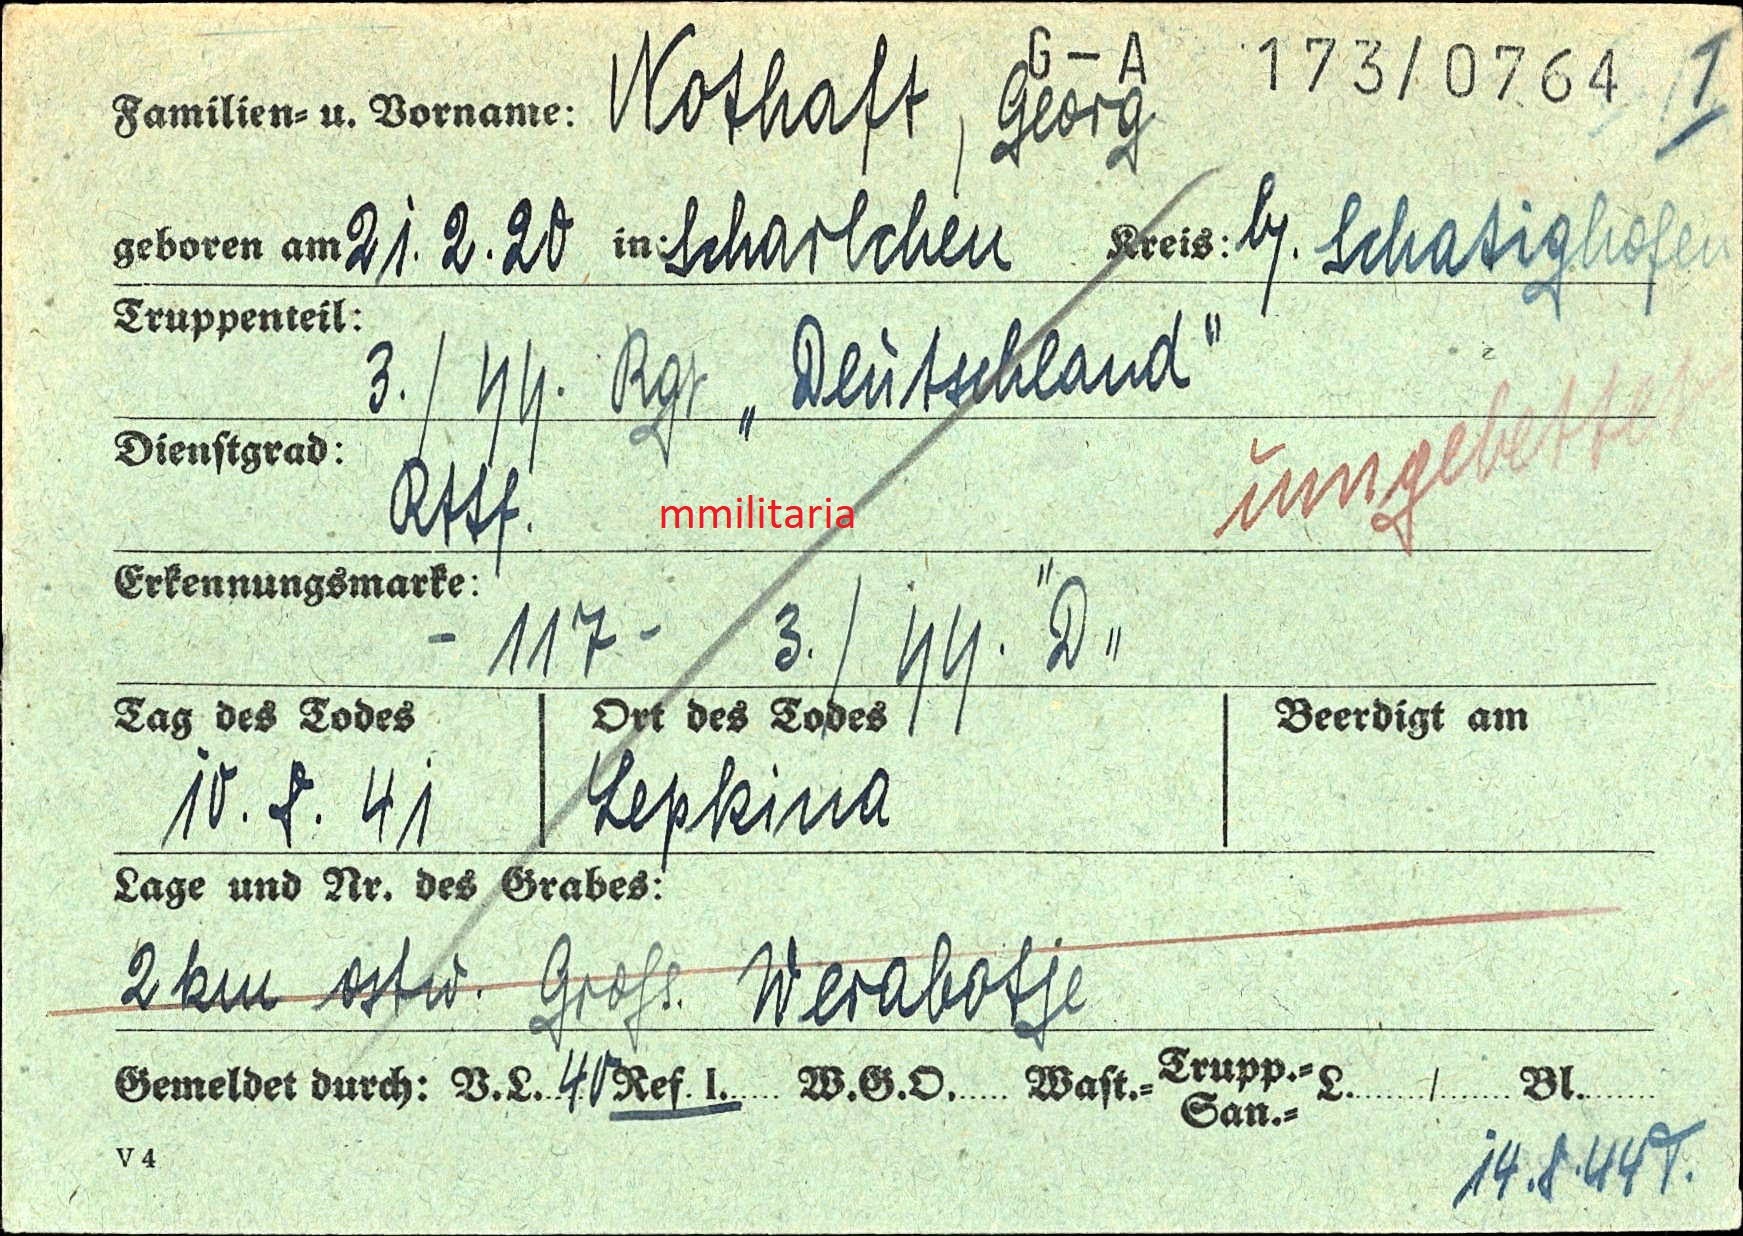 G-A 173/0764 1
Familien- u. Vorname: Nothaft, Georg
geboren am 21.2.20 in: Scharlchen Kreis: by. Schatighofen
Truppenteil:
3./ 44. Rgt „Deutschland"
Dienstgrad:
Rttf. mmilitaria
umgebettet
Erkennungsmarke:
- 117 - 3./ 44. "D"
Tag des Todes Ort des Todes Beerdigt am
10.8.41 Lepkina
Lage und Nr. des Grabes:
2 km ostw. Groß. Werabotje
Gemeldet durch: V.L. 40 Ref. I. W.G.O. Wast.- Trupp.- San.- L. / Bl.
V 4
14.8.44 T.